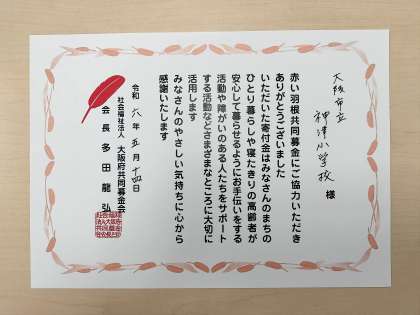 大阪市立
神津小学校 様
赤い羽根共同募金にご協力いただき
ありがとうございました
いただいた寄付金はみなさんのまちの
ひとり暮らしや寝たきりの高齢者が
安心して暮らせるようにお手伝いをする
活動や障がいのある人たちをサポート
する活動などさまざまなところに大切に
活用します
みなさんのやさしい気持ちに心から
感謝いたします
令和 六 年 五 月 十四 日
社会福祉法人 大阪府共同募金会
会長 多田 龍弘